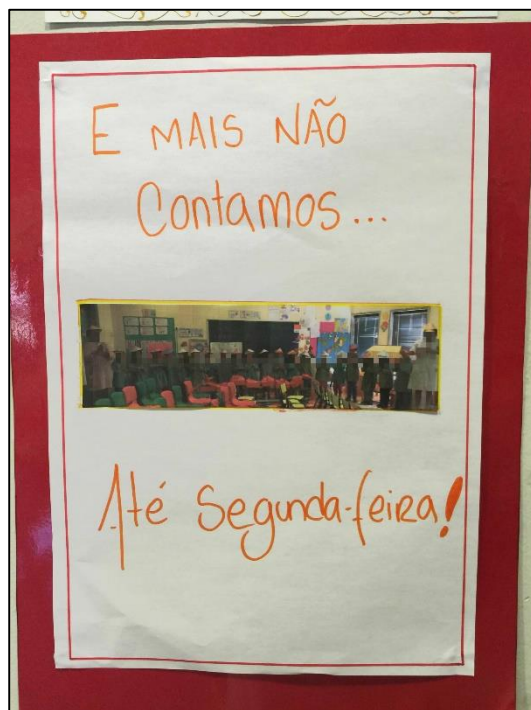 E MAIS NÃO
Contamos...
Até Segunda-feira!